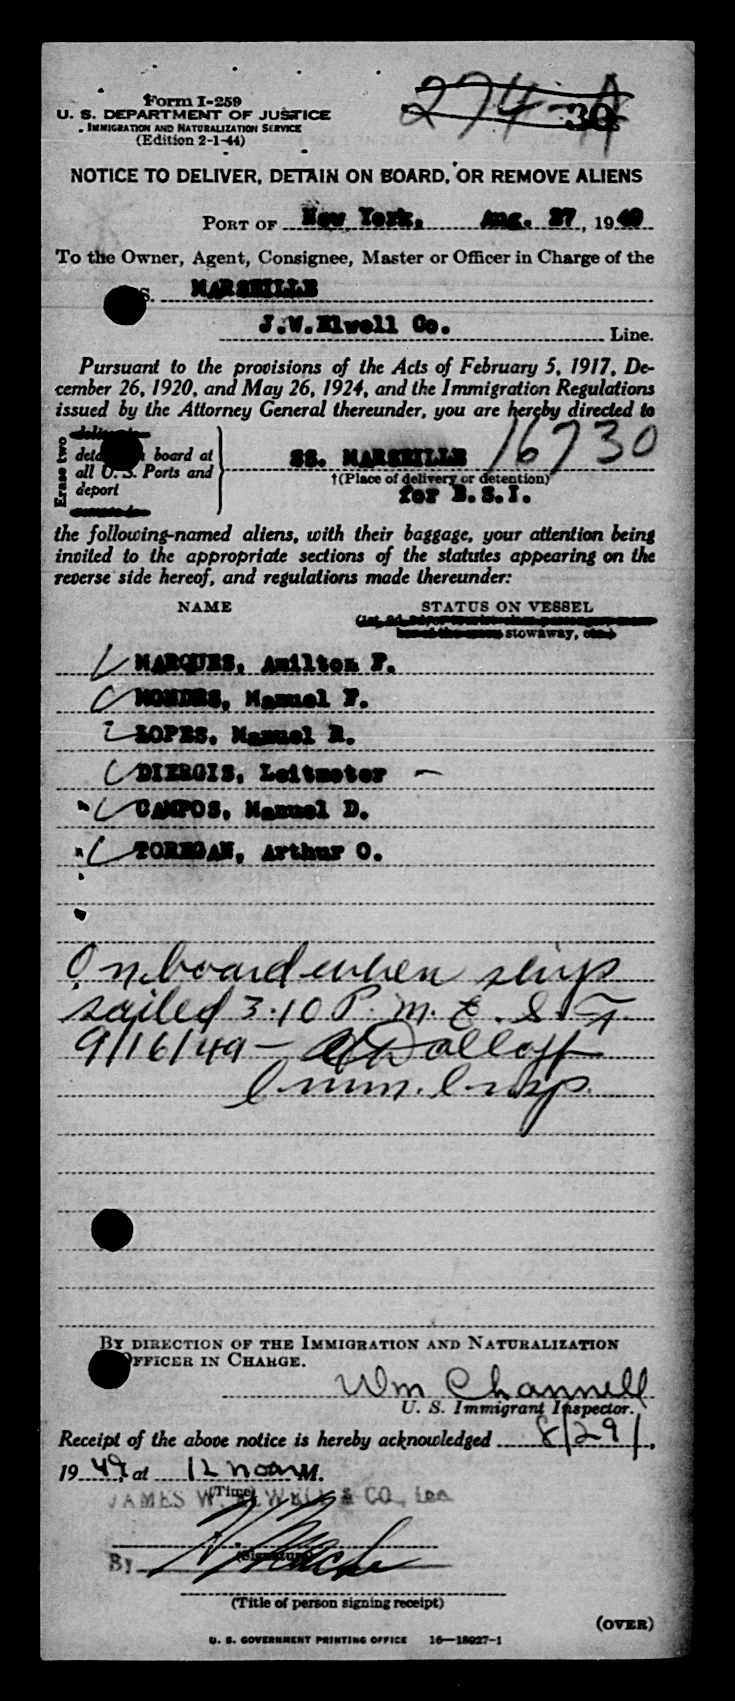 Form I-259
U. S. DEPARTMENT OF JUSTICE
IMMIGRATION AND NATURALIZATION SERVICE
(Edition 2-1-44)
274-A
30
NOTICE TO DELIVER, DETAIN ON BOARD, OR REMOVE ALIENS
PORT OF New York, Aug. 27, 1949
To the Owner, Agent, Consignee, Master or Officer in Charge of the
SS. MARSEILLE
J.W.Elwell Co. Line.
Pursuant to the provisions of the Acts of February 5, 1917, De-
cember 26, 1920, and May 26, 1924, and the Immigration Regulations
issued by the Attorney General thereunder, you are hereby directed to
16730
Erase two
board at
all U. S. Ports and
deport
SS. MARSEILLE
†(Place of delivery or detention)
for B.S.I.
the following-named aliens, with their baggage, your attention being
invited to the appropriate sections of the statutes appearing on the
reverse side hereof, and regulations made thereunder:
NAME STATUS ON VESSEL
stowaway,
MARQUES, Amilton F.
MONDES, Manuel F.
LOPES, Manuel R.
DIERGIS, Leitmeter
CAMPOS, Manuel D.
TOREGAN, Arthur O.
On board when ship
sailed 3:10 P. M. E. S. T.
9/16/49 -
Imm. Insp.
BY DIRECTION OF THE IMMIGRATION AND NATURALIZATION
OFFICER IN CHARGE.
Wm Channell
U. S. Immigrant Inspector.
Receipt of the above notice is hereby acknowledged 8/29/,
1949, at 12 noon M.
(Time)
JAMES W. ELWELL & CO., Inc
By
(Signature)
(Title of person signing receipt)
(OVER)
U. S. GOVERNMENT PRINTING OFFICE 16—18927-1